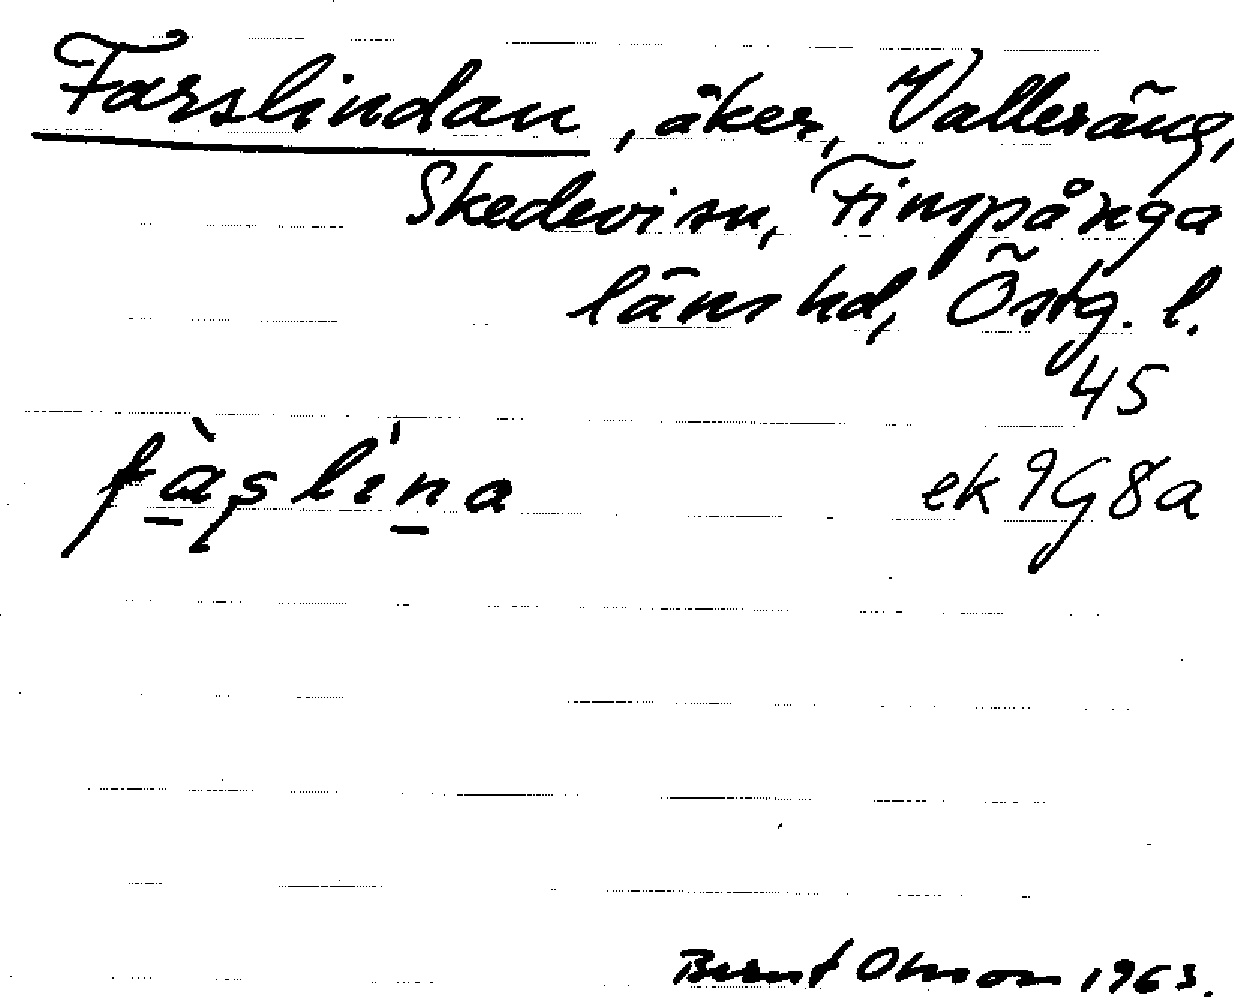 Farslindan, åker, Valleräng,
Skedevi sn, Finspånga
läns hd, Östg. l.
45
fàslìna ek 9G8a
Bernt Olsson 1963.